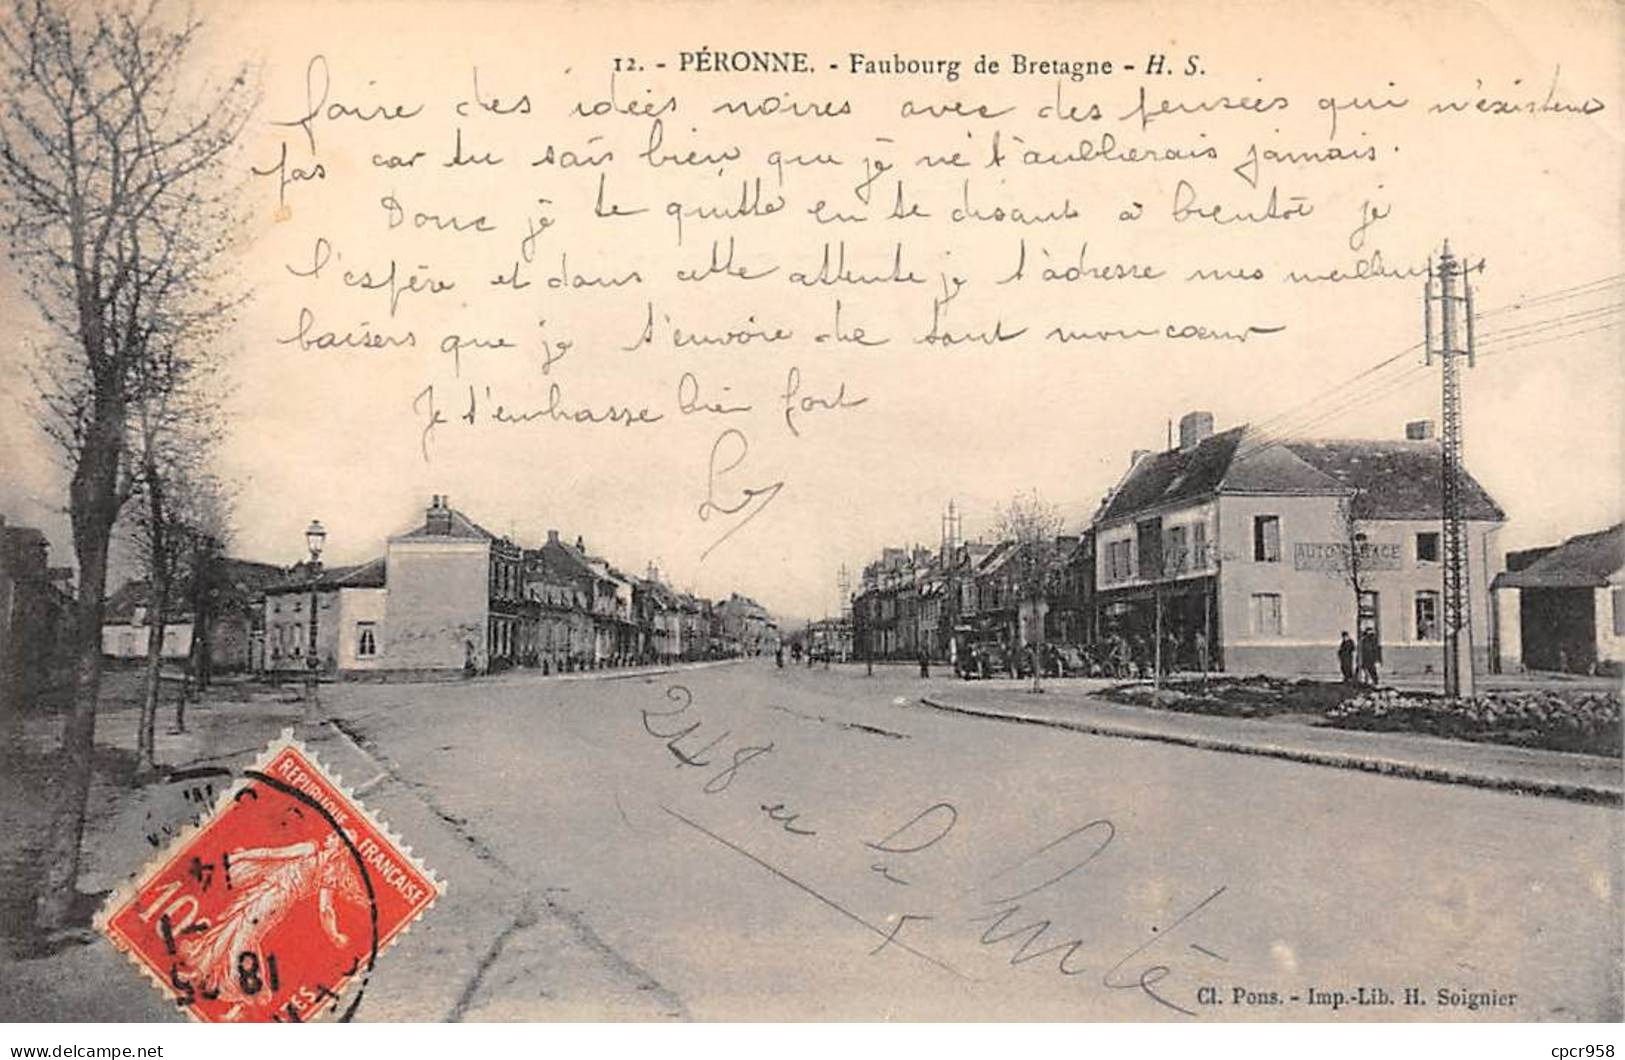 12. - PÉRONNE. - Faubourg de Bretagne - H. S.
faire des idées noires avec des pensées qui n'existent
pas car tu sais bien que je ne t'aublierais jamais.
Donc je te quitte en te disant à bientôt je
l'espère et dans cette attente je t'adresse mes meilleurs
baisers que je t'envoire de tout mon cœur
Je t'embrasse bien fort
AUTO-GARAGE
248 en
REPUBLIQUE FRANÇAISE
10c
POSTES
14
18
Cl. Pons. - Imp.-Lib. H. Soignier
delcampe.net
cpcr958